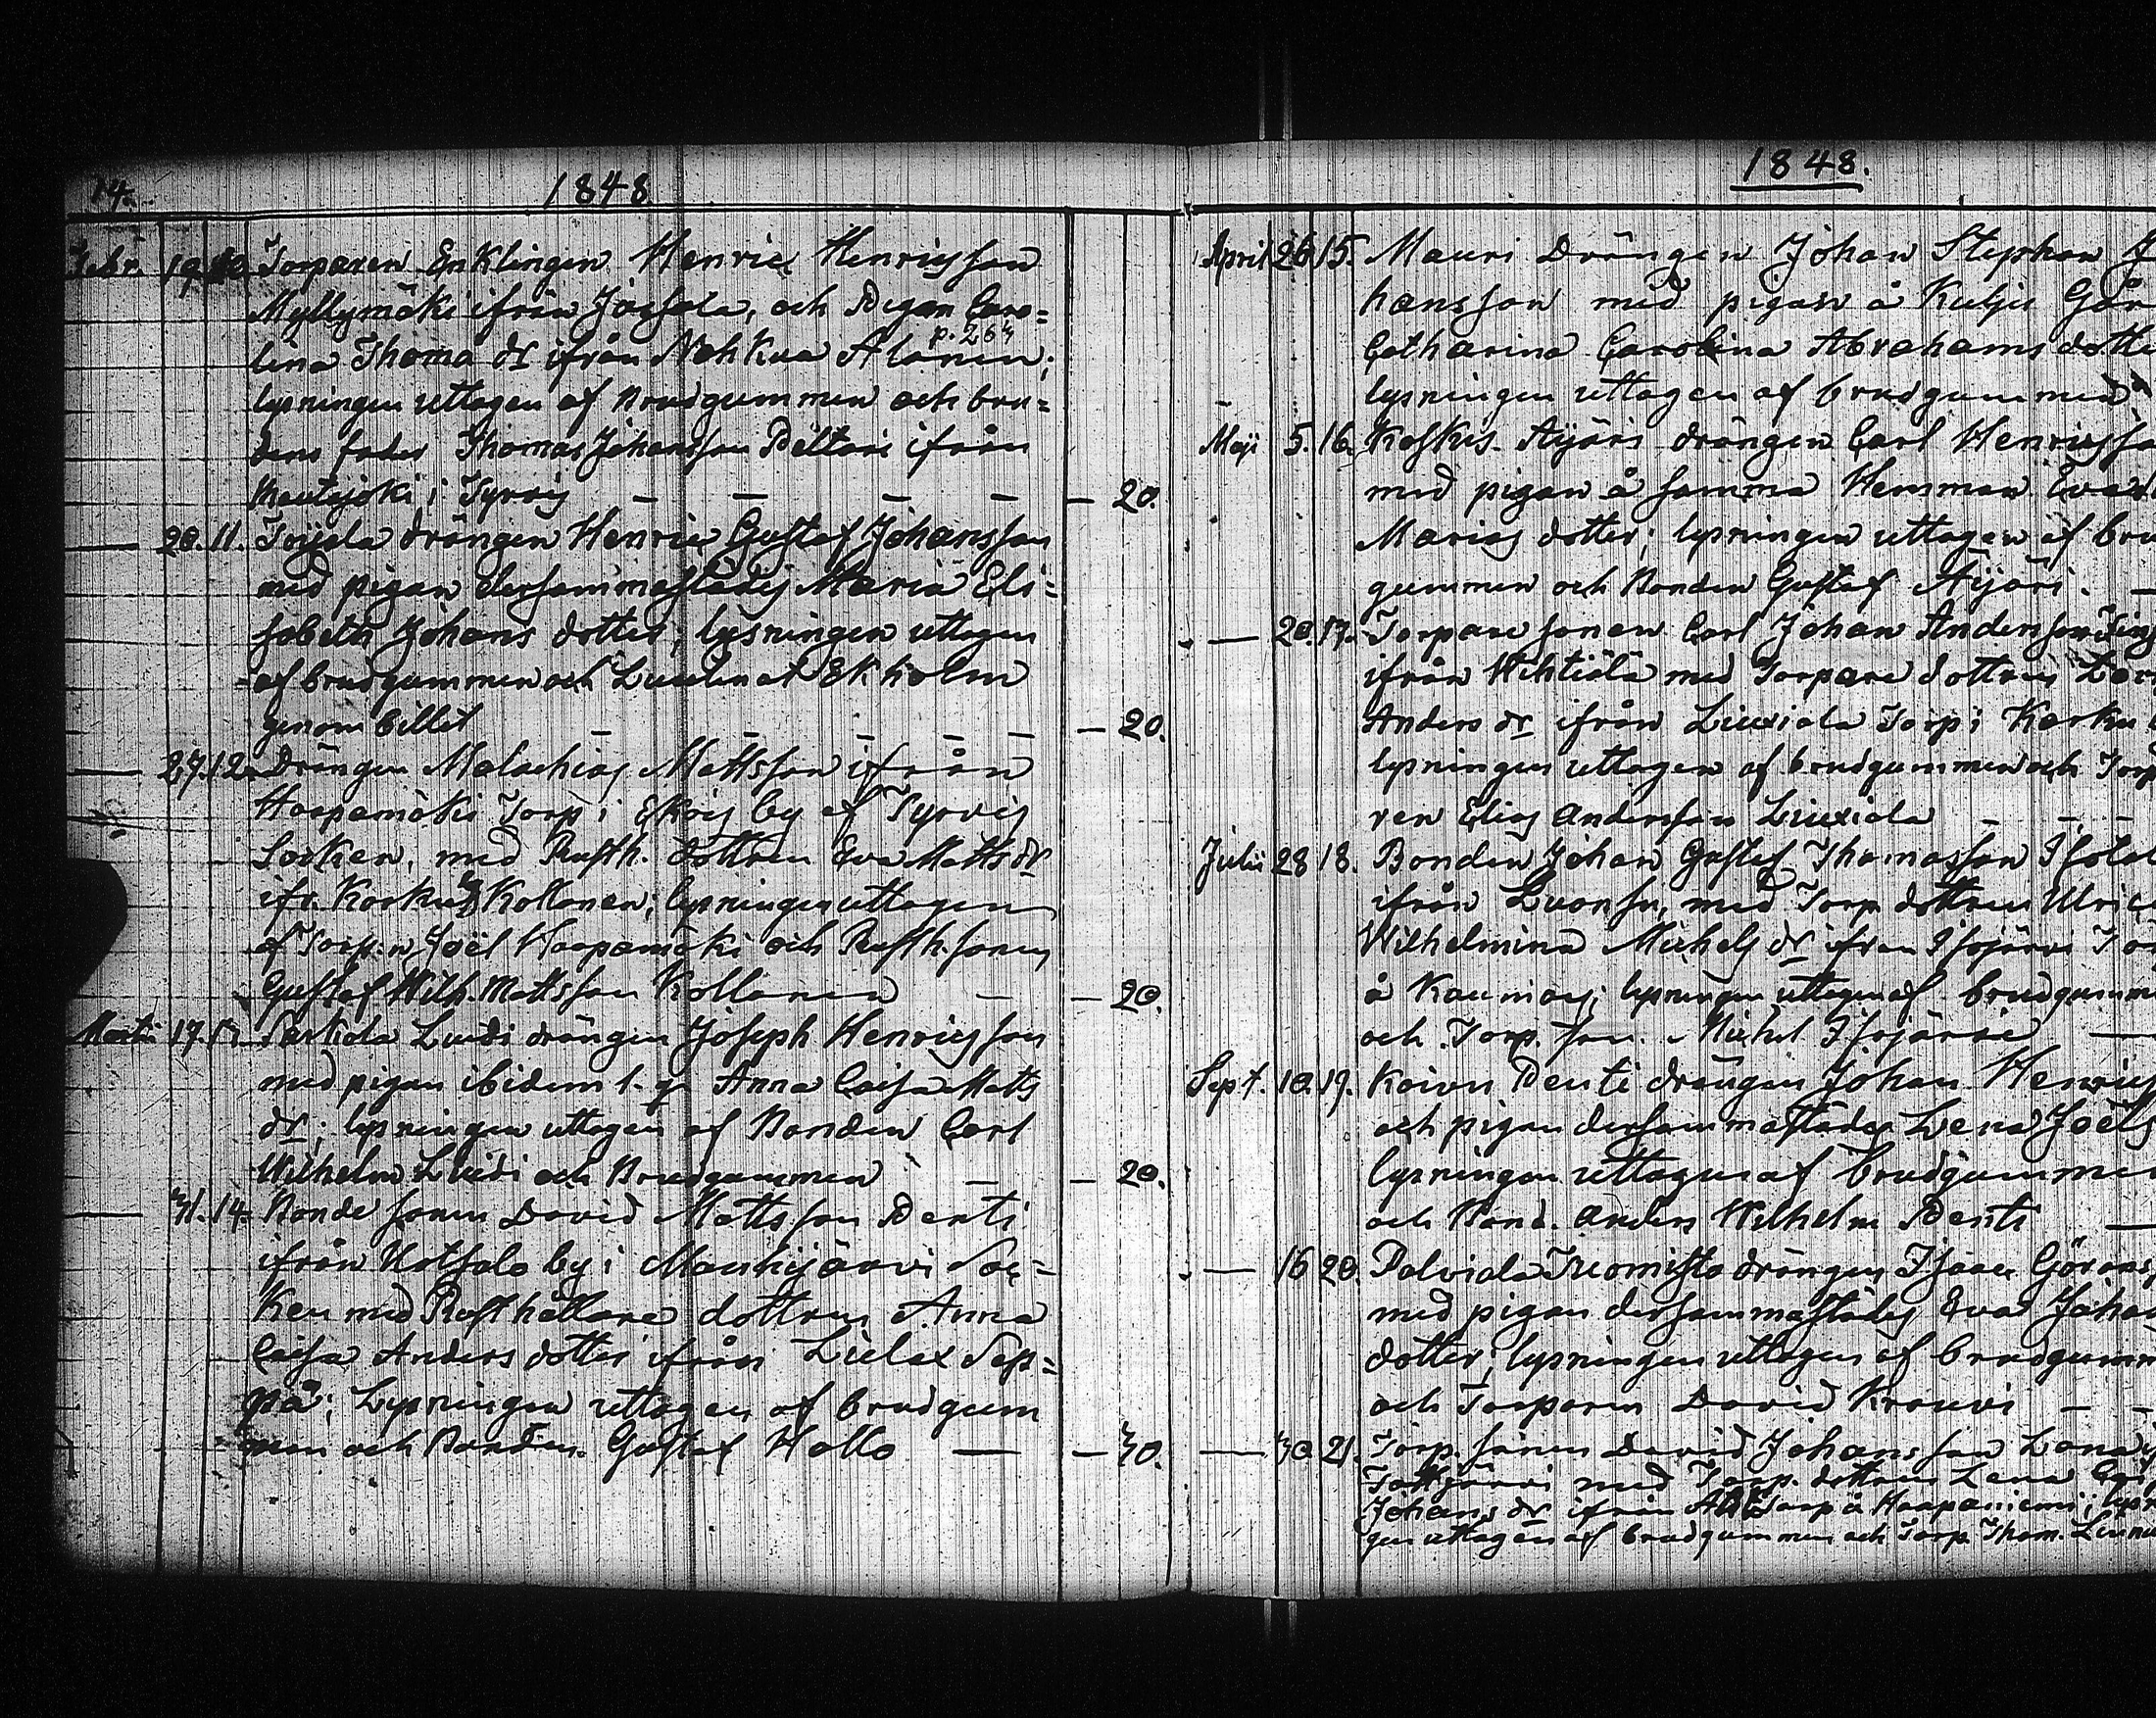 14.
1848
Febr. 19. 10. Torparen Enklingen Henric Henricsson
Myllymäki ifrån Joesala, och Pigan Caro=
p. 264
lina Thoma dr ifrån Nohkua Alanen;
lysningen uttagen af Brudgummen och bru=
dens fader Thomas Johansson Pältari ifrån
Kautzjoki i Tyrvis — — — — — 20.
— 20. 11. Toijala drängen Henric Gustaf Johansson
med pigan dersammastädes Maria Eli=
sabeth Johans dotter; lysningen uttagen
af brudgummen och Ekholm
genom billet — — — — — — 20.
— 27. 12. Drängen Malachias Mattsson ifrån
Haapamäki Torp i Ekois by af Tyrvis
Socken, med Rusth. dottren Eva Matts dr
ifr. Karku Kottanen; lysningen uttagen
af Torp.n Joël Haapamäki och Rusth. sonen
Gustaf Wilh. Mattsson Kottanen — — 20.
Martii 17. 13. Sarkola Luudi drängen Joseph Henricsson
med pigan ibidem Anna Caisa Matts
dr; lysningen uttagen af Bonden Carl
Wilhelm Luudi och Brudgummen — — 20.
— 31. 14. Bonde sonen David Mattsson Penti
ifrån Hotsola by i Mouhijärvi Soc=
ken med Rusthållare dottren Anna
Caisa Anders dotter ifrån Lielax Sep=
pä; Lysningen uttagen af brudgum
men och Bonden Gustaf Hollo — — 30.
1848.
April 26 15. Mauri Drängen Johan Stephan Jo
hansson med pigan å Kulju Går
Catharina Carolina Abrahams dotte
lysningen uttagen af brudgummen
Maji 5. 16. Koskis Äijäri drängen Carl Henricsso
med pigan å samma Hemman Eva
Marias dotter; lysningen uttagen af bru
gummen och Bonden Gustaf Äijäri —
— 20. 17. Torpare sonen Carl Johan Andersson
ifrån Wihtiälä med Torpare dottren
Anders dr ifrån Liuxiala Torp i Karku
lysningen uttagen af brudgummen och Torp
ren Elias Andersson Liuxiala — — —
Julii 28 18. Bonden Johan Gustaf Thomasson Isota
ifrån Luonsu, med Torp dottren Ulric
Wilhelmina Michels dr ifrån Isojärvi To
å Kauniais; lysningen uttagen af brudgumm
och Torp. son. Michel Isojärvi —
Sept. 10. 19. Koivu Penti drängen Johan Henrics
och pigan dersammastädes Lena Joëls
lysningen uttagen af brudgummen
och Bond. Anders Wilhelm Penti —
— 16 20. Polviala Tuomisto drängen Isaac Görans
med pigan dersammastädes Eva Johans
dotter; lysningen uttagen af brudgumm
och Torparen David Krouvi — —
— 30. 21. Torp. sonen David Johansson
Tottijärvi med Torp. dottren Lena
Johans dr ifrån Torp å Haapaniemi; lysn
gen uttagen af brudgummen och Torp. Thom.